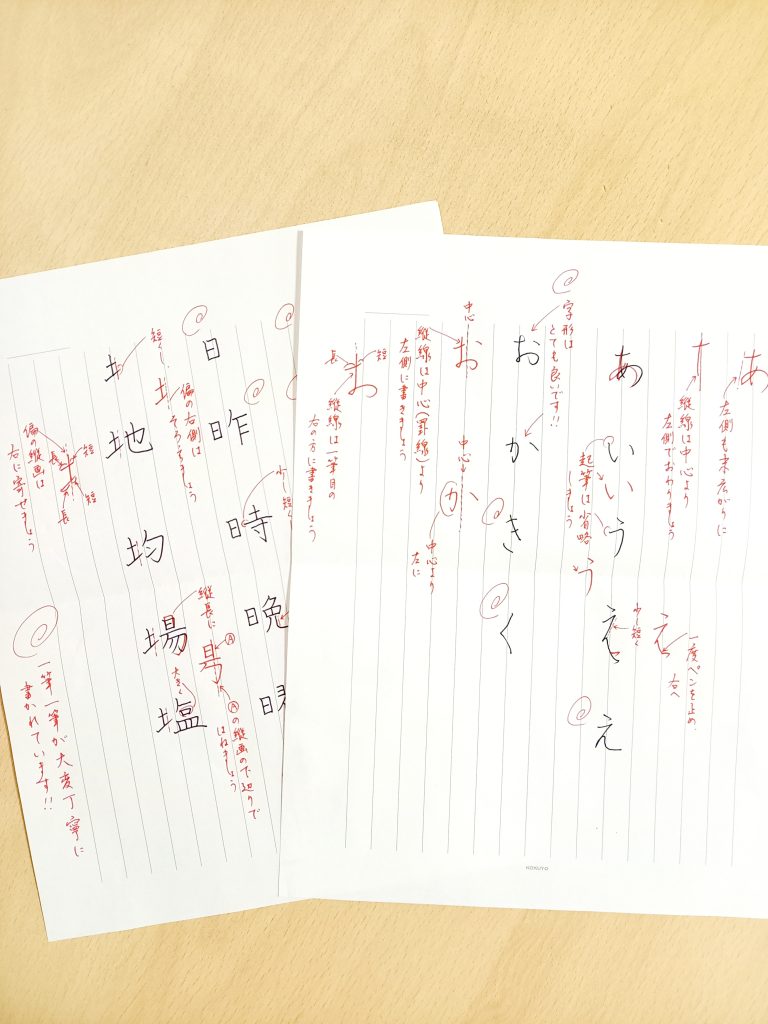 あ
左側も末広がりに
縦線は中心より
左側でおわりましょう
一度ペンを止め
右へ
え
あ
い
う
え
え
少し短く
起筆は省略
しましょう
い
う
字形は
とても良いです!!
お
か
き
く
中心
お
中心
か
中心より
左に
縦線は中心(罫線)より
左側に書きましょう
短
長
お
縦線は一筆目の
右の方に書きましょう
KOKUYO
日
昨
時
晩
少し短く
短くし、
偏の右側は
そろえましょう
地
均
場
塩
縦長に
大きく
Ⓐ
Ⓐの縦画の下辺りで
はねましょう
短
長
短
長
偏の縦画は
右に寄せましょう
一筆一筆が大変丁寧に
書かれています!!